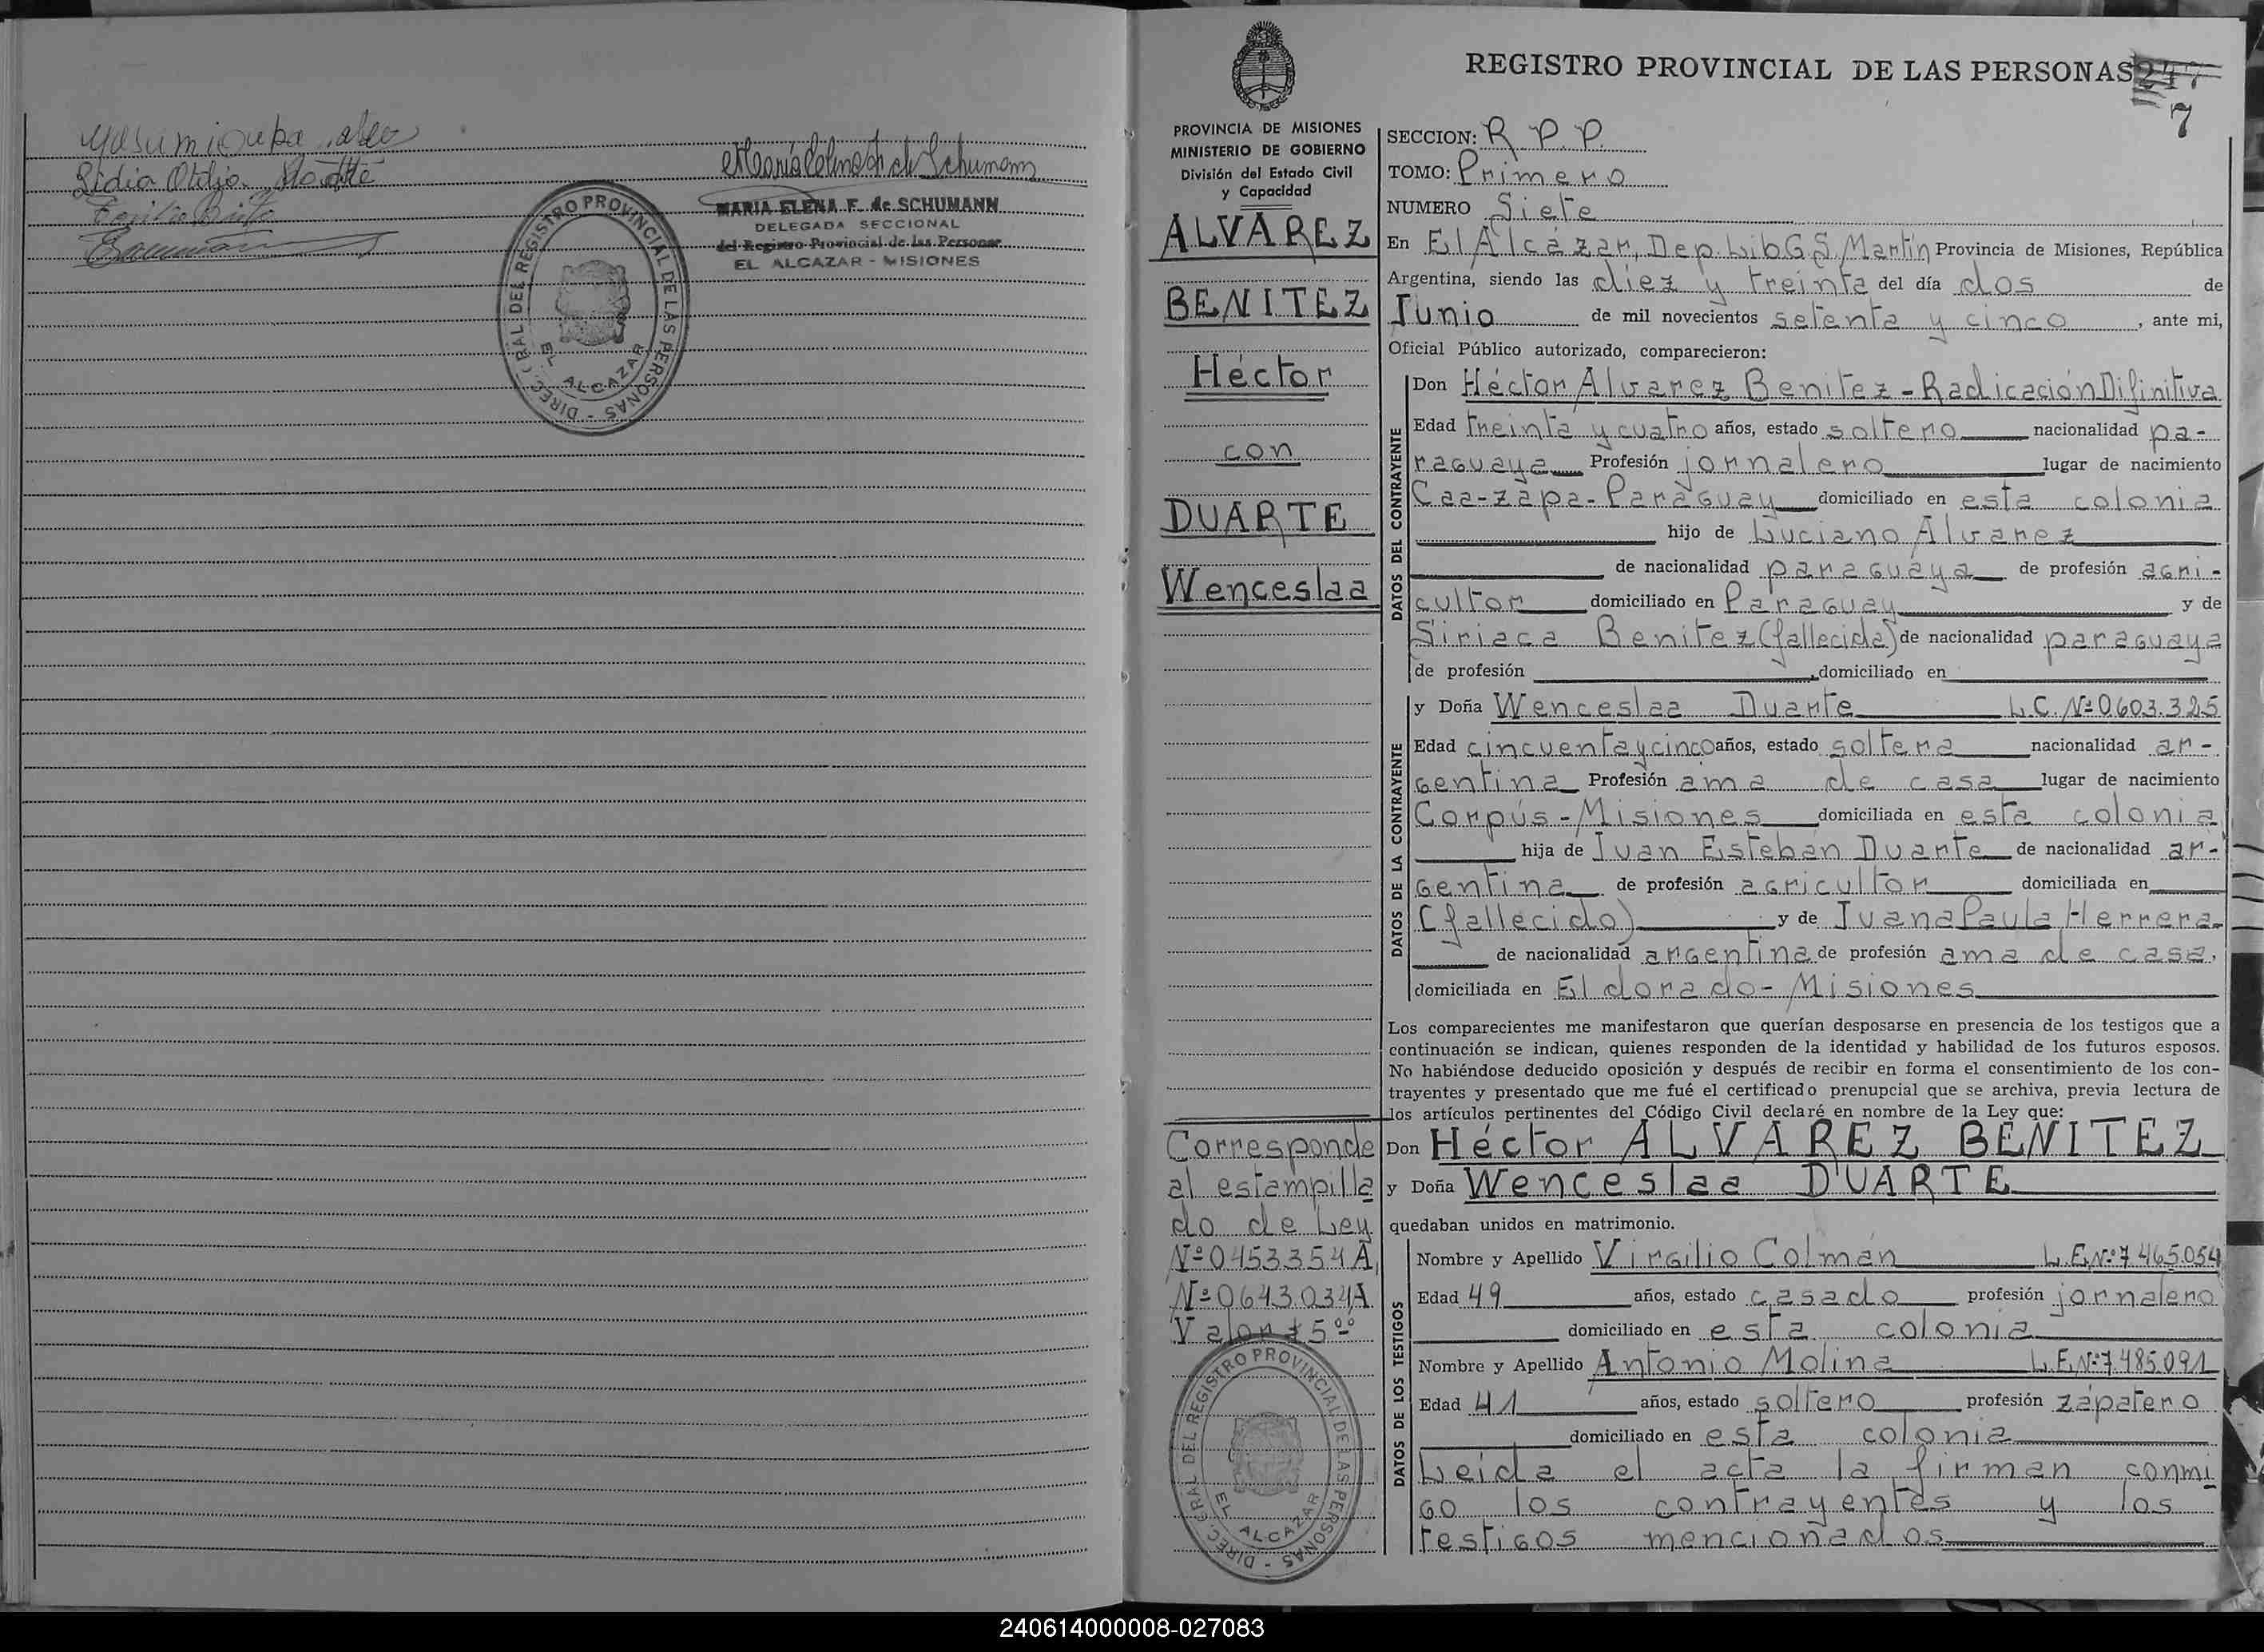 Lidia Otilia
MARIA ELENA F. de SCHUMANN
DELEGADA SECCIONAL
del Registro Provincial de las Personas
EL ALCAZAR - MISIONES
DIREC. GRAL DEL REGISTRO PROVINCIAL DE LAS PERSONAS -
EL ALCAZAR
REGISTRO PROVINCIAL DE LAS PERSONAS 247
7
PROVINCIA DE MISIONES
MINISTERIO DE GOBIERNO
División del Estado Civil
y Capacidad
ALVAREZ
BENITEZ
Héctor
con
DUARTE
Wenceslaa
Corresponde
al estampilla
do de Ley
Nº 0453354 A,
Nº 0643034A
Valor $ 5⁰⁰
DIREC. GRAL DEL REGISTRO PROVINCIAL DE LAS PERSONAS -
EL ALCAZAR
SECCION: R.P.P.
TOMO: Primero
NUMERO Siete
En El Alcázar, Dep. Lib G. S. Martín Provincia de Misiones, República
Argentina, siendo las diez y treinta del día dos de
Junio de mil novecientos setenta y cinco, ante mi,
Oficial Público autorizado, comparecieron:
DATOS DEL CONTRAYENTE
Don Héctor Alvarez Benitez - Radicación Difinitiva
Edad treinta y cuatro años, estado soltero nacionalidad pa-
raguaya Profesión jornalero lugar de nacimiento
Caa-zapa-Paraguay domiciliado en esta colonia
hijo de Luciano Alvarez
de nacionalidad paraguaya de profesión agri-
cultor domiciliado en Paraguay y de
Siriaca Benitez (fallecida) de nacionalidad paraguaya
de profesión , domiciliado en
DATOS DE LA CONTRAYENTE
y Doña Wenceslaa Duarte L.C. Nº 0.603.325
Edad cincuenta y cinco años, estado soltera nacionalidad ar-
gentina Profesión ama de casa lugar de nacimiento
Corpús - Misiones domiciliada en esta colonia
hija de Juan Esteban Duarte de nacionalidad ar-
gentina de profesión agricultor domiciliada en
(fallecido) y de Juana Paula Herrera
de nacionalidad argentina de profesión ama de casa,
domiciliada en Eldorado - Misiones
Los comparecientes me manifestaron que querían desposarse en presencia de los testigos que a
continuación se indican, quienes responden de la identidad y habilidad de los futuros esposos.
No habiéndose deducido oposición y después de recibir en forma el consentimiento de los con-
trayentes y presentado que me fué el certificado prenupcial que se archiva, previa lectura de
los artículos pertinentes del Código Civil declaré en nombre de la Ley que:
Don Héctor ALVAREZ BENITEZ
y Doña Wenceslaa DUARTE
quedaban unidos en matrimonio.
DATOS DE LOS TESTIGOS
Nombre y Apellido Virgilio Colmán L.E. Nº 7.465.054
Edad 49 años, estado casado profesión jornalero
domiciliado en esta colonia
Nombre y Apellido Antonio Molina L.E. Nº 7.485.091
Edad 41 años, estado soltero profesión zapatero
domiciliado en esta colonia
Leida el acta la firman conmi
go los contrayentes y los
testigos mencionados
240614000008-027083